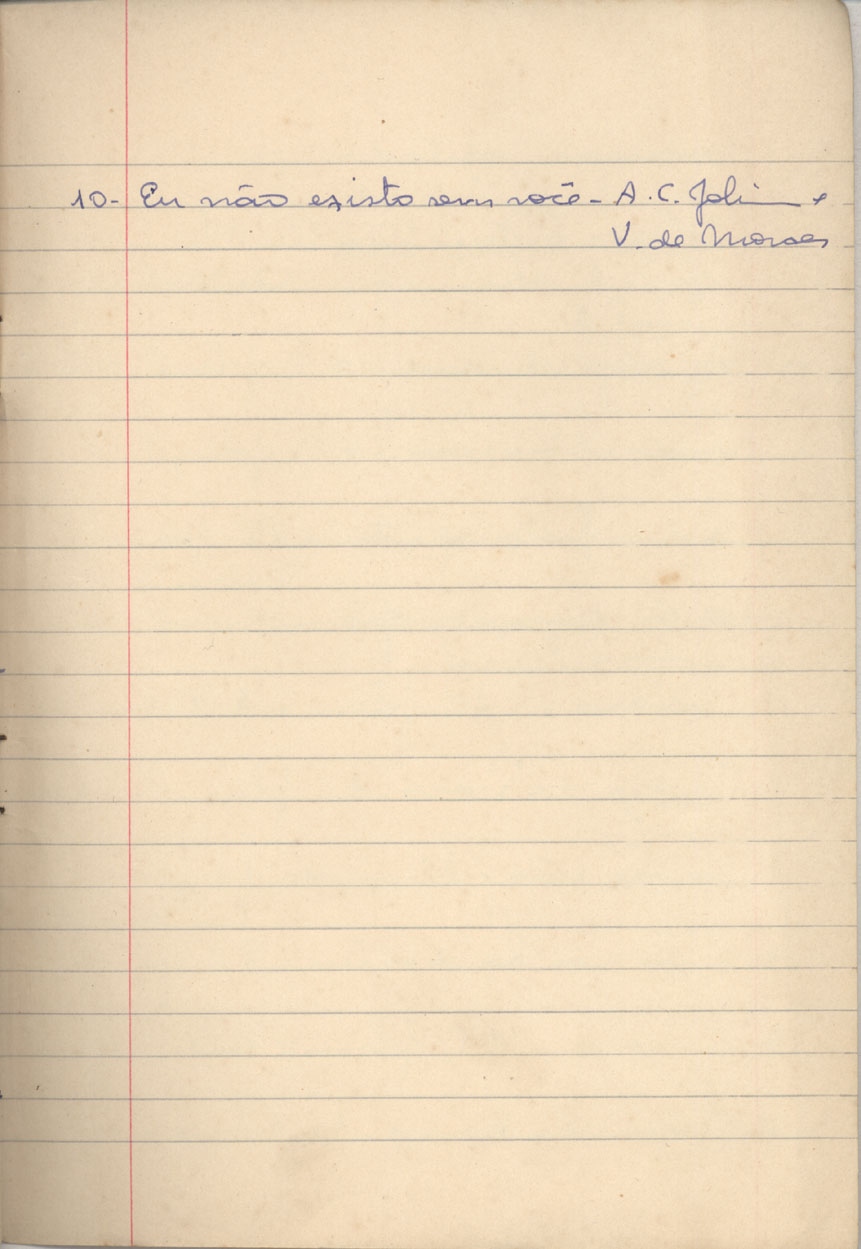 10- Eu não existo sem você - A. C. Jobim e
V. de Moraes